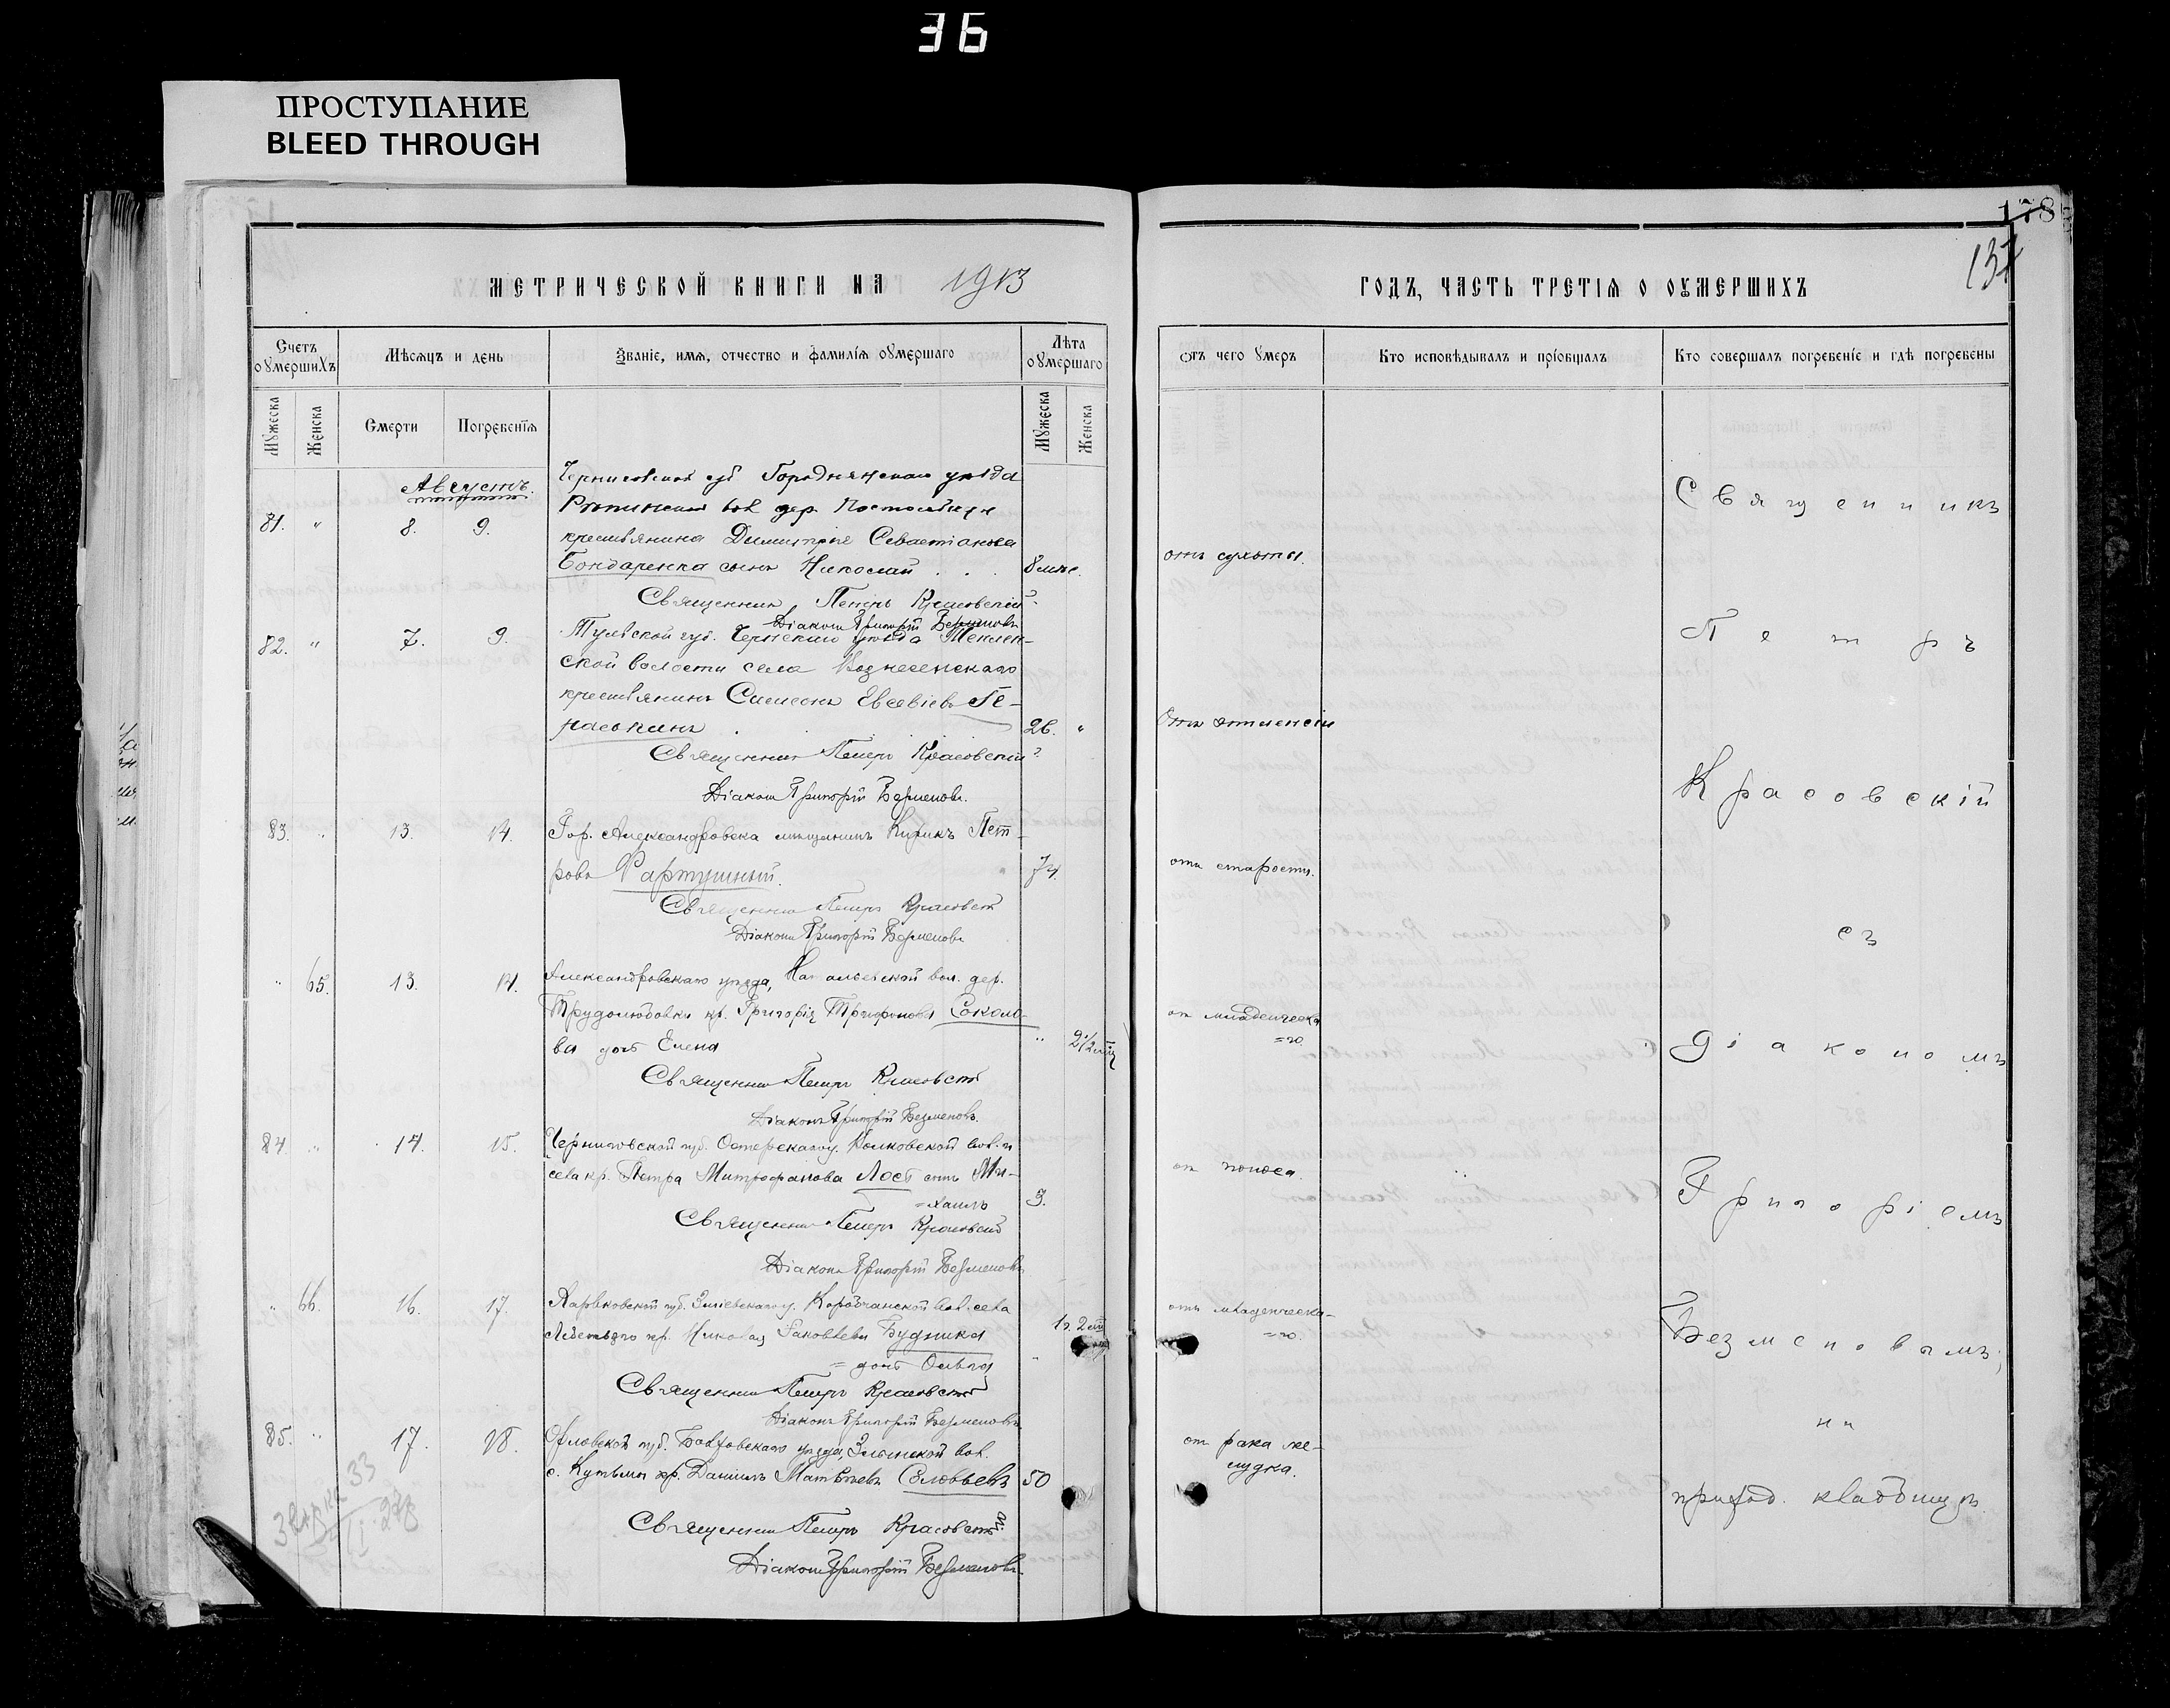 36
ПРОСТУПАНИЕ
BLEED THROUGH
178
137
МЕТРИЧЕСКОЙ КНИГИ НА 1913
ГОДЪ, ЧАСТЬ ТРЕТІЯ О ОУМЕРШИХЪ
Счетъ оумершихъ
Мѣсяцъ и день
Званіе, имя, отчество и фамилія оумершаго
Лѣта оумершаго
Отъ чего умеръ
Кто исповѣдывалъ и пріобщалъ
Кто совершалъ погребеніе и гдѣ погребены
Мужеска
Женска
Смерти
Погребенія
Мужеска
Женска
Августъ.
Черниговской губ Городнянскаго уѣзда
Репинской вол дер.
81. " 8. 9.
крестьянина Димитрія Севастіанова
Бондаренка сынъ Николай . . . 8 мѣс. отъ сухоты.
Священникъ Петръ Красовскій
Діаконъ Григорій Безменовъ
82. " 7. 9. Тульской губ. Чернскаго уѣзда
ской волости села Вознесенскаго
крестьянинъ Симеонъ Евсевіевъ Ге-
раськинъ 26. "
Священникъ Петръ Красовскій
Діаконъ Григорій Безменовъ.
83. " 13. 14. Гор. Александровска мѣщанинъ Кирикъ Пет-
ровъ 74. отъ старости.
Священникъ Петръ Красовскій
Діаконъ Григорій Безменовъ
" 65. 13. 14. Александровскаго уѣзда, Натальевской вол. дер.
Трудолюбовки кр. Григорія Трифонова Соколо-
ва дочь Елена " 2 1/2 отъ младенческа
=го.
Священникъ Петръ Красовскій
Діаконъ Григорій Безменовъ.
84 " 14. 15. Черниговской губ. Остерскаго у. вол. и
села кр. Петра Митрофанова сынъ Ми-
=хаилъ 3. от поноса.
Священникъ Петръ Красовскій
Діаконъ Григорій Безменовъ
" 66. 16. 17. Харьковской губ. Зміевскаго у. вол. села
кр. Николая Іаковлева Будника 1г. 2 отъ младенческа-
=го.
= дочь Ольга "
Священникъ Петръ Красовскій
Діаконъ Григорій Безменовъ
85. " 17. 18. Орловской губ. Болховскаго уѣзда, вол.
с. кр. Даніилъ Матѳеевъ Соловьевъ 50 от рака же-
лудка.
Священникъ Петръ Красовскій
Діаконъ Григорій Безменовъ.
Священникъ
Петръ
Красовскій
съ
діакономъ
Григоріемъ
Безменовымъ,
на
приход. кладбищѣ